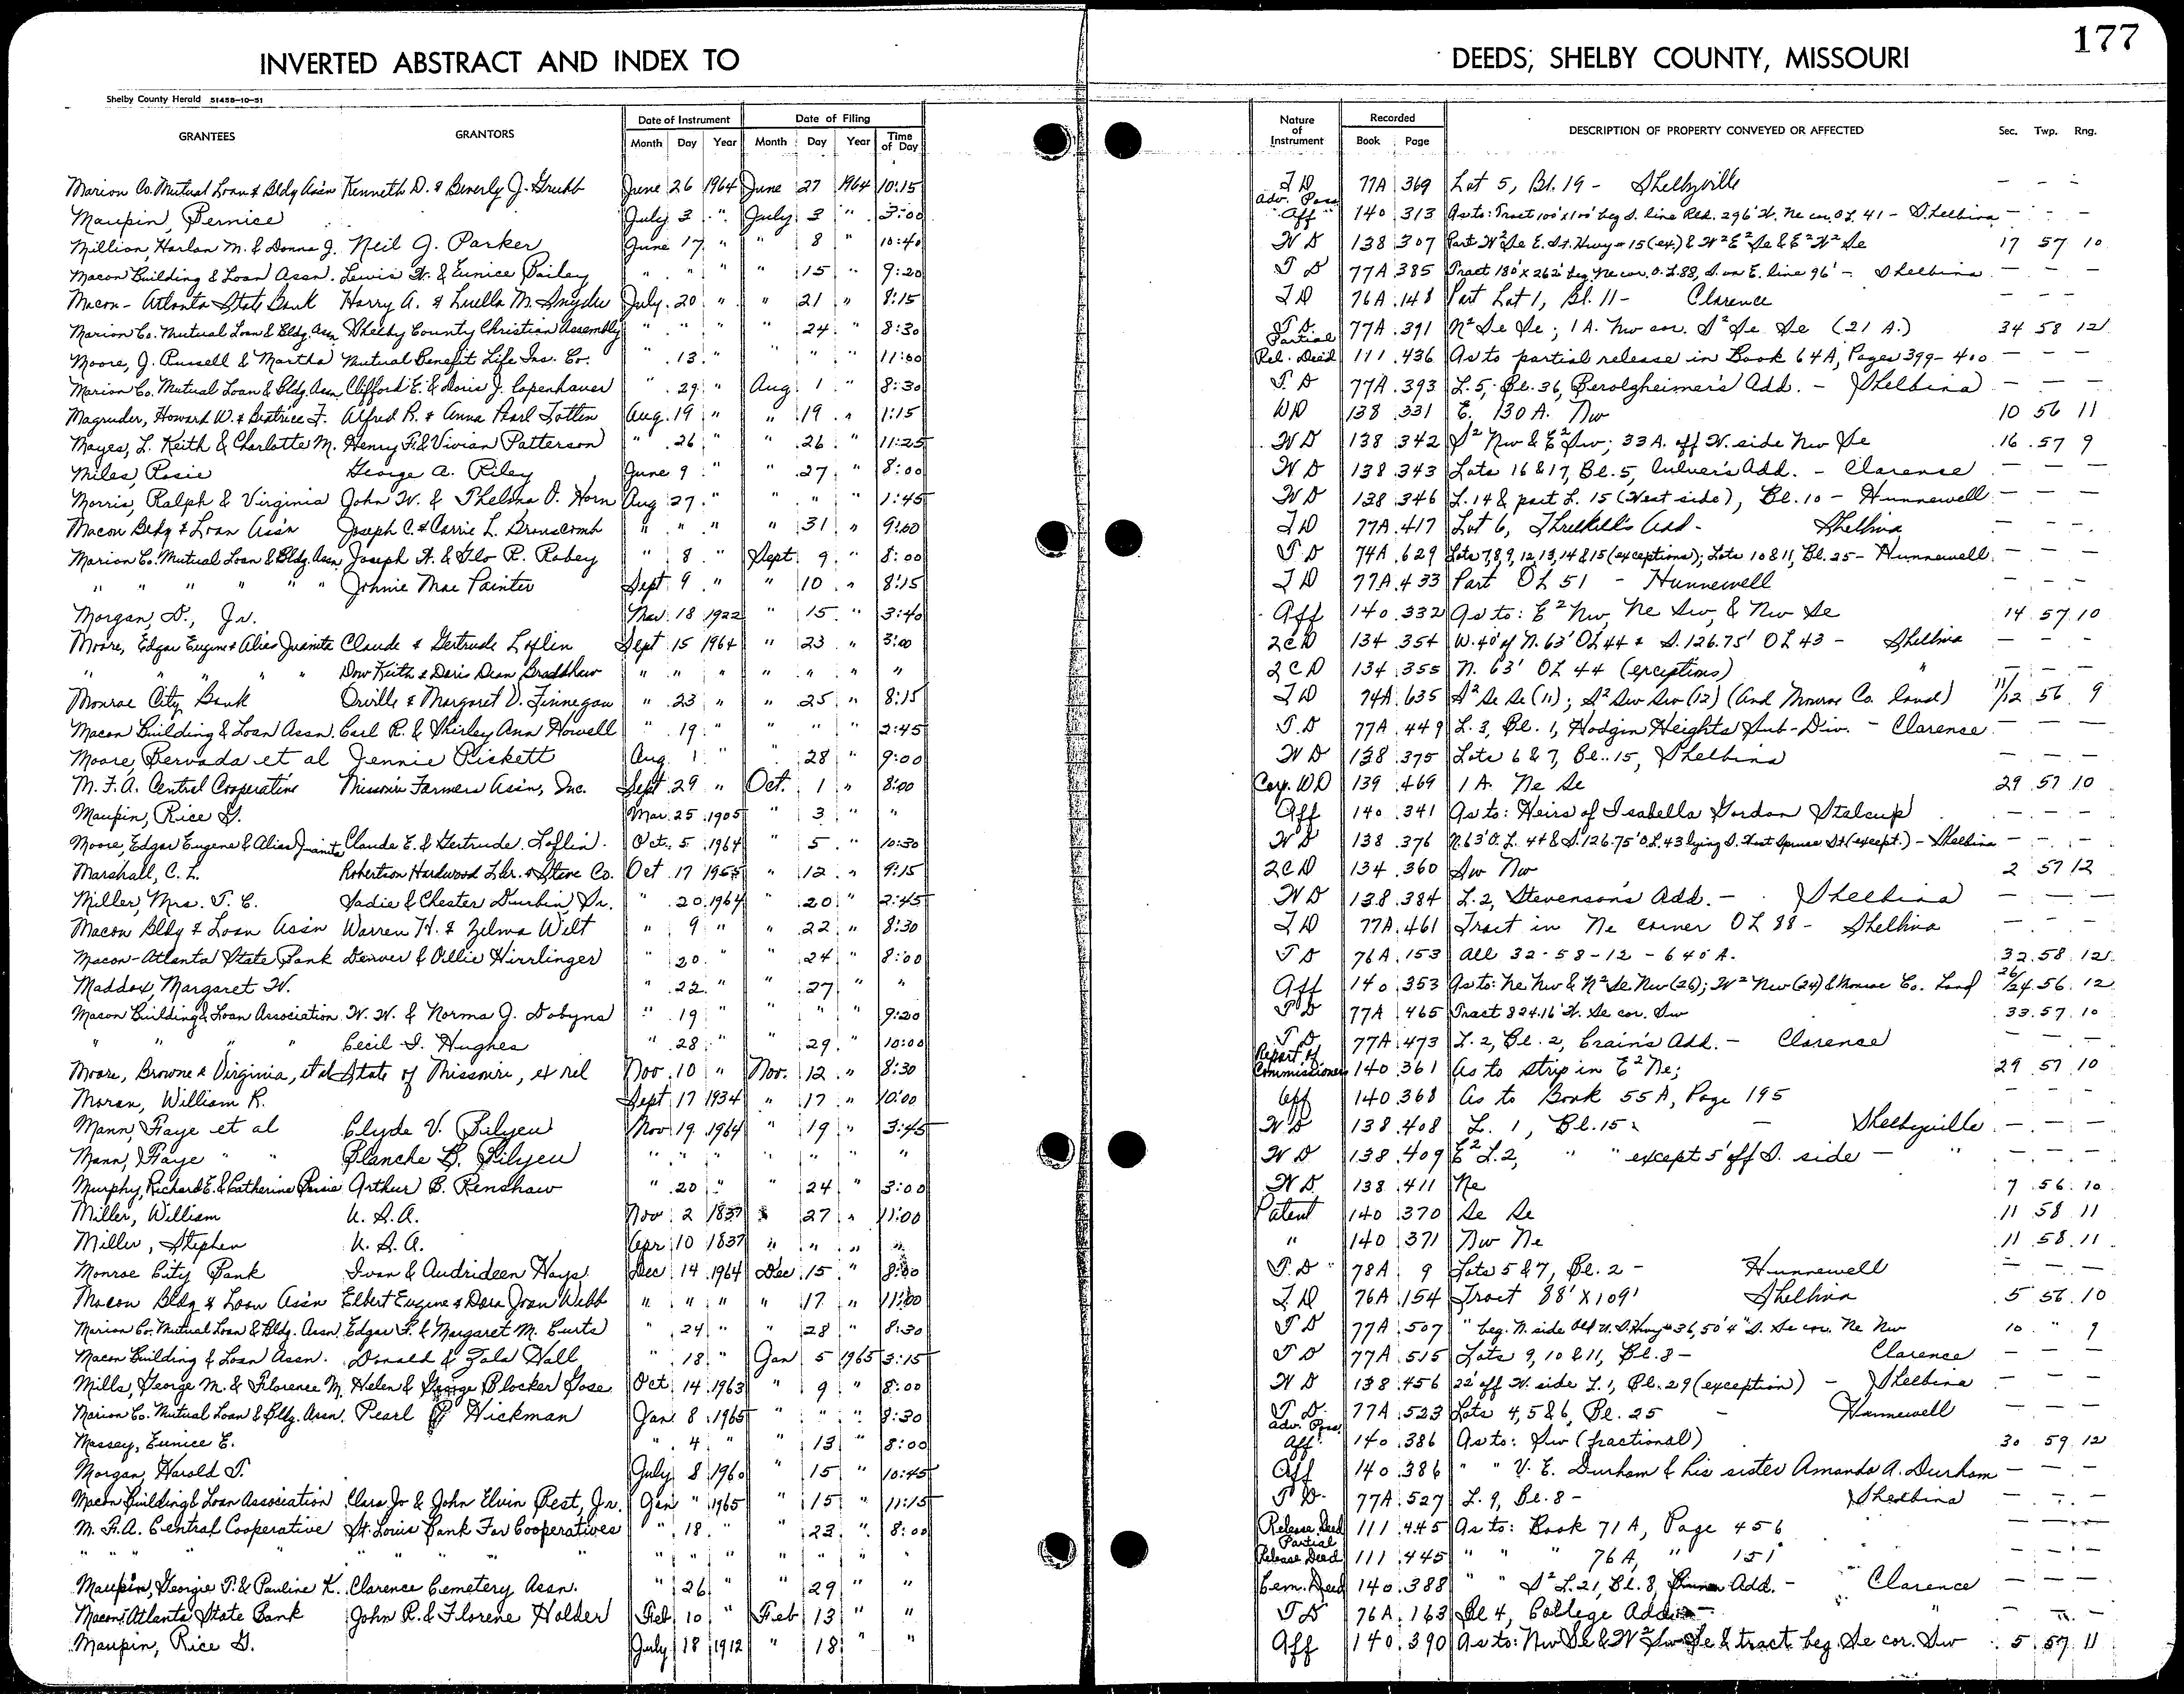 177
INVERTED ABSTRACT AND INDEX TO DEEDS, SHELBY COUNTY, MISSOURI
Shelby County Herald 51458-10-51
GRANTEES GRANTORS Date of Instrument Date of Filing Nature of Instrument Recorded DESCRIPTION OF PROPERTY CONVEYED OR AFFECTED Sec. Twp. Rng.
Month Day Year Month Day Year Time of Day Book Page
Marion Co. Mutual Loan & Bldg Ass'n Kenneth D. & Beverly J. Grubb June 26 1964 June 27 1964 10:15 T D 77A 369 Lot 5, Bl. 19 - Shelbyville - - -
Maupin, Bernice July 3 " July 3 " 3:00 Adv. Poss. Aff " 140 313 As to: Tract 100'x100' beg S. line Rld. 296' W. Ne cor. OL 41 - Shelbina - - -
Million, Harlan M. & Donna J. Neil J. Parker June 17 " " 8 " 10:40 W D 138 307 Part W² Se E. St. Hwy # 15 (ex) & W² E² Se & E² W² Se 17 57 10
Macon Building & Loan Assn. Lewis W. & Eunice Bailey " " " " 15 " 9:20 T D 77A 385 Tract 180' x 262' beg Ne cor. O.L 88, S. on E. line 96' - Shelbina - - -
Macon-Atlanta State Bank Harry A. & Luella M. Snyder July 20 " " 21 " 8:15 T D 76A 148 Part Lot 1, Bl. 11 - Clarence - - -
Marion Co. Mutual Loan & Bldg. Assn Shelby County Christian Assembly " " " " 24 " 8:30 T D. 77A 391 N² Se Se; 1 A. Nw cor. S² Se Se (21 A.) 34 58 12
Moore, J. Russell & Martha Mutual Benefit Life Ins. Co. " 13 " " " " 11:00 Partial Rel. Deed 111 436 As to partial release in Book 64A, Pages 399-400 - - -
Marion Co. Mutual Loan & Bldg. Assn Clifford E. & Doris J. Copenhaver " 29 " Aug 1 " 8:30 T. D 77A 393 L. 5, Bl. 36, Berolzheimer's Add. - Shelbina - - -
Magruder, Howard W. & Beatrice F. Alfred R. & Anna Pearl Totten Aug. 19 " " 19 " 1:15 WD 138 331 E. 130 A. Nw 10 56 11
Mayes, L. Keith & Charlotte M. Henry F. & Vivian Patterson " 26 " " 26 " 11:25 W D 138 342 S² Nw & E² Sw; 33 A. off W. side Nw Se 16 57 9
Miles, Rosie George A. Riley June 9 " " 27 " 8:00 W D 138 343 Lots 16 & 17, Bl. 5, Culver's Add. - Clarence - - -
Morris, Ralph & Virginia John W. & Thelma O. Horn Aug 27 " " " " 1:45 W D 138 346 L. 14 & part L. 15 (West side), Bl. 10 - Hunnewell - - -
Macon Bldg & Loan Ass'n Joseph C. & Carrie L. Branscomb " " " " 31 " 9:00 T D 77A 417 Lot 6, Threlkeld's Add - Shelbina - - -
Marion Co. Mutual Loan & Bldg. Assn Joseph H. & Glo R. Robey " 8 " Sept 9 " 8:00 T D 74A 629 Lots 7, 8, 9, 12, 13, 14 & 15 (exceptions); Lots 10 & 11, Bl. 25 - Hunnewell - - -
" " " " " " Johnie Mae Painter Sept 9 " " 10 " 8:15 T D 77A 433 Part OL 51 - Hunnewell - - -
Morgan, D., Jr. Mar 18 1922 " 15 " 3:40 Aff 140 332 As to: E² Nw, Ne Sw, & Nw Se 14 57 10
Moore, Edgar Eugene & Alias Juanita Claude & Gertrude Loflin Sept 15 1964 " 23 " 3:00 2CD 134 354 W. 40' of N. 63' OL 44 & S. 126.75' OL 43 - Shelbina - - -
" " " " " Dow Keith & Doris Dean Bradshaw " " " " " " " 2CD 134 355 N. 63' OL 44 (exceptions) " - - -
Monroe City Bank Orville & Margaret V. Finnegan " 23 " " 25 " 8:15 T D 74A 635 S² Se Se (11); S² Sw Sw (12) (And Monroe Co. land) 11/12 56 9
Macon Building & Loan Assn. Carl R. & Shirley Ann Howell " 19 " " " " 2:45 T.D 77A 449 L. 3, Bl. 1, Hodgin Heights Sub-Div. - Clarence - - -
Moore, Bervada et al Jennie Pickett Aug 1 " " 28 " 9:00 W D 138 375 Lots 6 & 7, Bl. 15, Shelbina - - -
M. F. A. Central Cooperative Missouri Farmers Ass'n, Inc. Sept 29 " Oct. 1 " 8:00 Corp. WD 139 469 1 A. Ne Se 29 57 10
Maupin, Rice G. Mar 25 1905 " 3 " " Aff 140 341 As to: Heirs of Isabella Gordon Stalcup - - -
Moore, Edgar Eugene & Alias Juanita Claude E. & Gertrude Loflin Oct. 5 1964 " 5 " 10:30 W D 138 376 N. 63' O.L. 44 & S. 126.75' O.L. 43 lying S. West Spruce St (except.) - Shelbina - - -
Marshall, C. L. Robertson Hardwood Lbr. & Stave Co. Oct 17 1955 " 12 " 9:15 2CD 134 360 Sw Nw 2 57 12
Miller, Mrs. T. C. Sadie & Chester Durbin, Sr. " 20 1964 " 20 " 2:45 W D 138 384 L. 2, Stevenson's Add. - Shelbina - - -
Macon Bldg & Loan Ass'n Warren H. & Zelma Wilt " 9 " " 22 " 8:30 T D 77A 461 Tract in Ne corner OL 88 - Shelbina - - -
Macon-Atlanta State Bank Denver & Ollie Hirrlinger " 20 " " 24 " 8:00 T D 76A 153 All 32-58-12 - 640 A. 32 58 12
Maddox, Margaret W. " 22 " " 27 " " Aff 140 353 As to: Ne Nw & N² Se Nw (26); W² Nw (24) & Monroe Co. Land 26/24 56 12
Macon Building & Loan Association W. W. & Norma J. Dobyns " 19 " " " " 9:20 T D 77A 465 Tract 824.16' W. Se cor. Sw 33 57 10
" " " " Cecil I. Hughes " 28 " " 29 " 10:00 T D 77A 473 L. 2, Bl. 2, Crain's Add. - Clarence - - -
Moore, Browne & Virginia, et al State of Missouri, ex rel Nov 10 " Nov. 12 " 8:30 Report of Commissioners 140 361 As to strip in E² Ne; 29 57 10
Moran, William R. Sept 17 1934 " 17 " 10:00 Aff 140 368 As to Book 55A, Page 195 - - -
Mann, Faye et al Clyde V. Bilyeu Nov 19 1964 " 19 " 3:45 W D 138 408 L. 1, Bl. 15 - Shelbyville - - -
Mann, Faye " " Blanche B. Bilyeu " " " " " " " W D 138 409 E² L. 2, " " except 5' off S. side - " - - -
Murphy, Richard E. & Catherine Arthur B. Renshaw " 20 " " 24 " 3:00 W D 138 411 Ne 7 56 10
Miller, William U. S. A. Nov 2 1837 " 27 " 11:00 Patent 140 370 Se Se 11 58 11
Miller, Stephen U. S. A. Apr 10 1837 " " " " " 140 371 Nw Ne 11 58 11
Monroe City Bank Ivan & Audrideen Hays Dec 14 1964 Dec 15 " 8:00 T. D 78A 9 Lots 5 & 7, Bl. 2 - Hunnewell - - -
Macon Bldg & Loan Ass'n Elbert Eugene & Dora Joan Webb " " " " 17 " 11:00 T D 76A 154 Tract 88' X 109' Shelbina 5 56 10
Marion Co. Mutual Loan & Bldg. Assn. Edgar F. & Margaret M. Curts " 24 " " 28 " 8:30 T D 77A 507 " beg. N. side Old U.S. Hwy # 36, 50' 4" S. Se cor. Ne Nw 10 " 9
Macon Building & Loan Assn. Donald & Zola Hall " 18 " Jan 5 1965 3:15 T D 77A 515 Lots 9, 10 & 11, Bl. 8 - Clarence - - -
Mills, George M. & Florence M. Helen & George Blocker Gose Oct 14 1963 " 9 " 8:00 W D 138 456 22' off W. side L. 1, Bl. 29 (exception) - Shelbina - - -
Marion Co. Mutual Loan & Bldg. Assn. Pearl Hickman Jan 8 1965 " " " 8:30 T D. 77A 523 Lots 4, 5 & 6, Bl. 25 - Hunnewell - - -
Massey, Eunice E. " 4 " " 13 " 8:00 Adv. Poss. Aff. 140 386 As to: Sw (fractional) 30 59 12
Morgan, Harold T. July 8 1960 " 15 " 10:45 Aff 140 386 " " V. E. Durham & his sister Amanda A. Durham - - -
Macon Building & Loan Association Clara Jo & John Elvin Best, Jr. Jan " 1965 " 15 " 11:15 T D. 77A 527 L. 9, Bl. 8 - Shelbina - - -
M. F. A. Central Cooperative St. Louis Bank For Cooperatives " 18 " " 23 " 8:00 Release Deed 111 445 As to: Book 71A, Page 456 - - -
" " " " " " " " " " " " " " " Partial Release Deed 111 445 " " " 76A, " 151 - - -
Maupin, George T. & Pauline K. Clarence Cemetery Assn. " 26 " " 29 " " Cem. Deed 140 388 " " S² L. 21, Bl. 8, Add. - Clarence - - -
Macon-Atlanta State Bank John R. & Florene Holder Feb 10 " Feb 13 " " T D 76A 163 Bl 4, College Add - " - - -
Maupin, Rice G. July 18 1912 " 18 " " Aff 140 390 As to: Nw Se & W² Sw Se & tract beg. Se cor. Sw 5 57 11